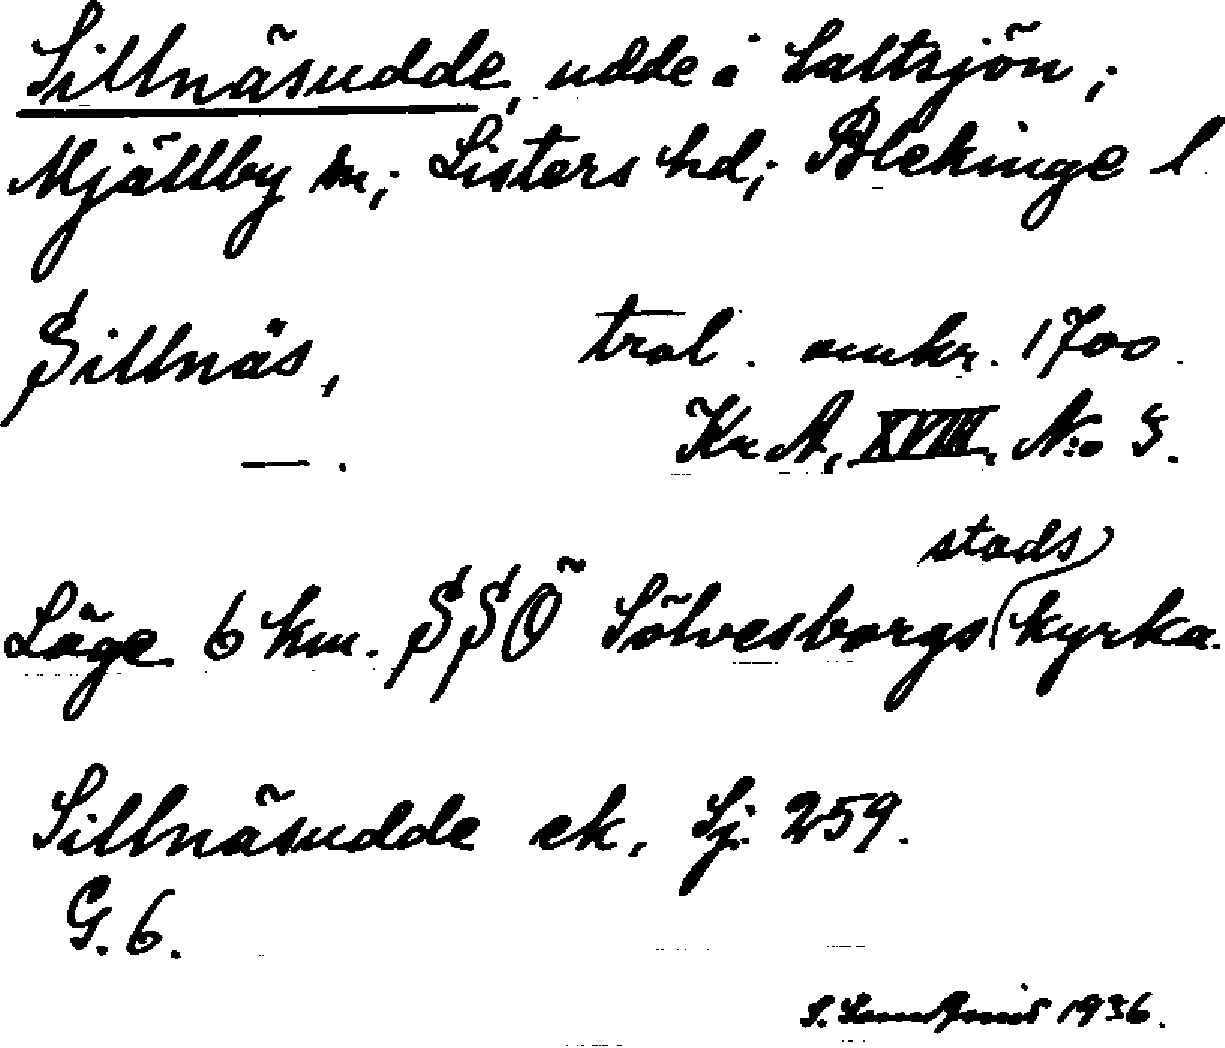 Sillnäsudde, udde i Saltsjön;
Mjällby sn; Listers hd; Blekinge l
Sillnäs, trol. omkr. 1700.
— . KrA, XVIII, No 3.
Läge 6 km. SSÖ Sölvesborgs stads kyrka.
Sillnäsudde ek. Sj. 259.
G. 6.
S. 1936.